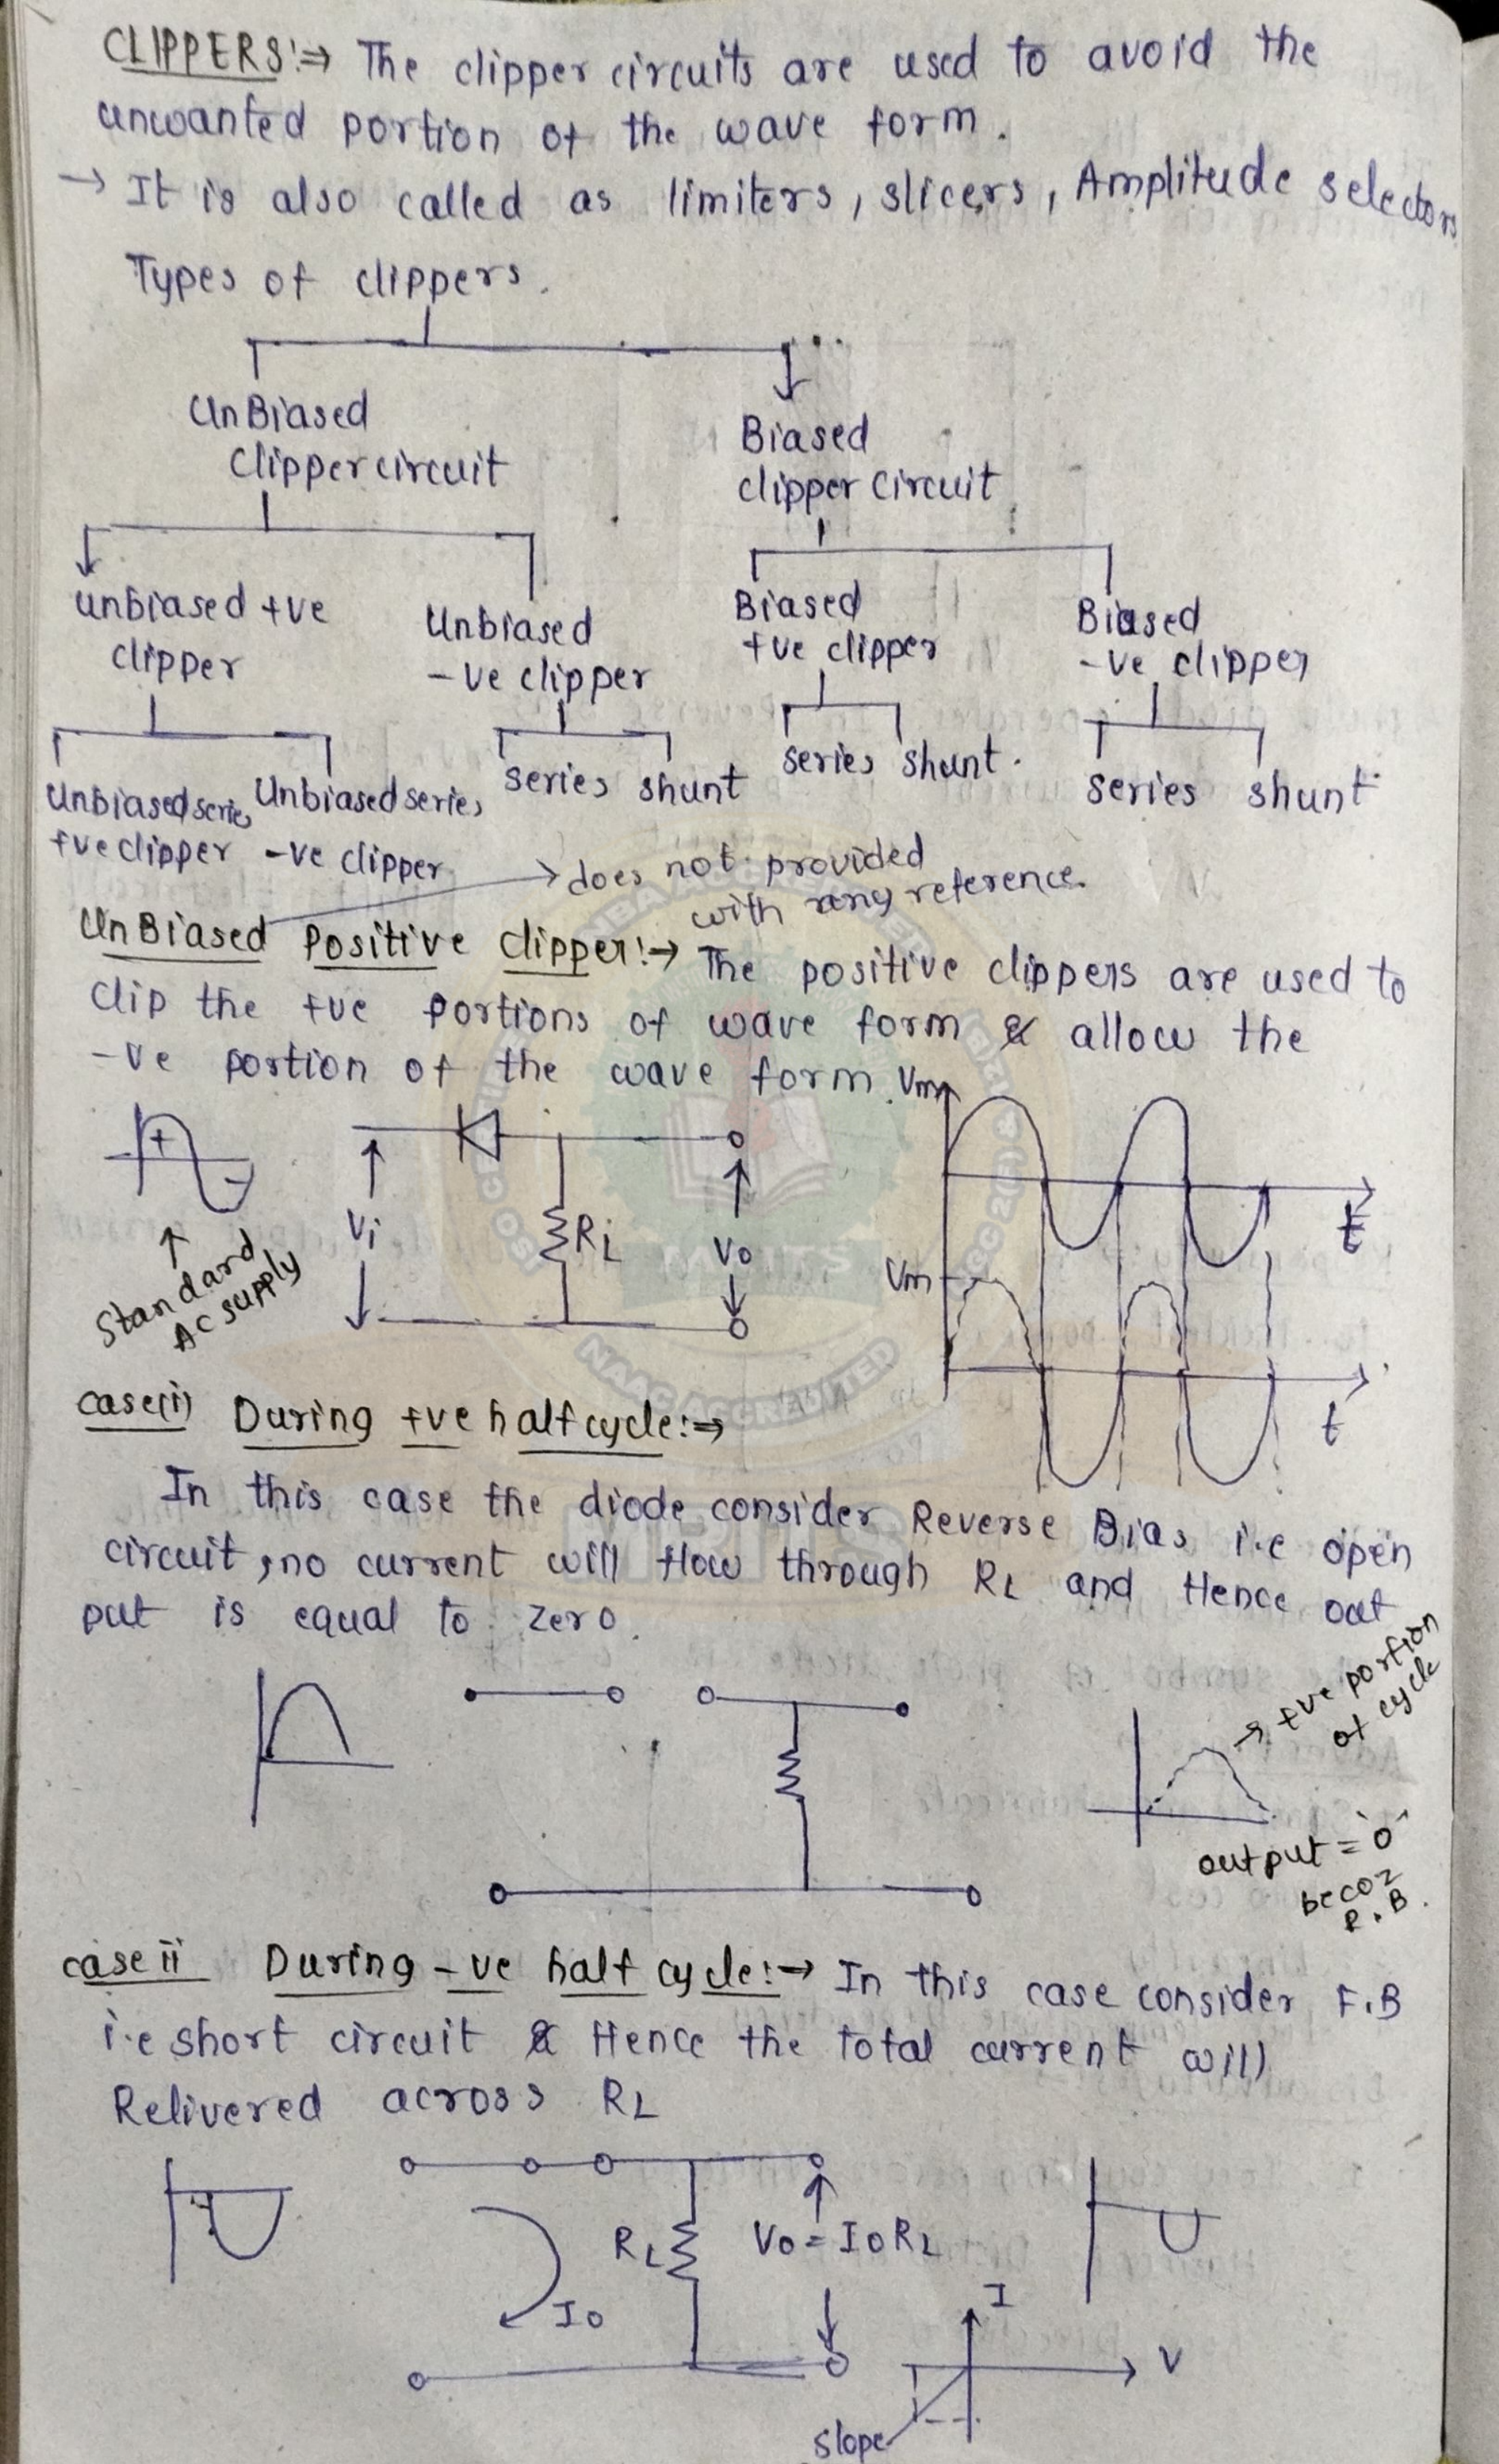 CLIPPERS:⇒ The clipper circuits are used to avoid the
unwanted portion of the wave form.
→ It is also called as limiters, slicers, Amplitude selectors
Types of clippers.
UnBiased
Clipper circuit
Biased
clipper circuit
unbiased +ve
clipper
Unbiased
-ve clipper
Biased
+ve clipper
Biased
-ve clipper
Unbiased series
+ve clipper
Unbiased series
-ve clipper
series shunt
series shunt.
series shunt
→ does not provided
with any reference.
UnBiased Positive clipper:→ The positive clippers are used to
clip the +ve portions of wave form & allow the
-ve portion of the wave form.
+
-
Standard
AC supply
Vi
RL
Vo
Vm
t
Vm
t
case(i) During +ve half cycle:⇒
In this case the diode consider Reverse Bias i.e open
circuit, no current will flow through RL and Hence out
put is equal to zero.
→ +ve portion
of cycle
output = '0'
becoz
R.B.
case ii During -ve half cycle:→ In this case consider F.B
i.e short circuit & Hence the total current will
Relivered across RL
RL
Vo = IoRL
Io
I
V
slope
NAAC ACCREDITED